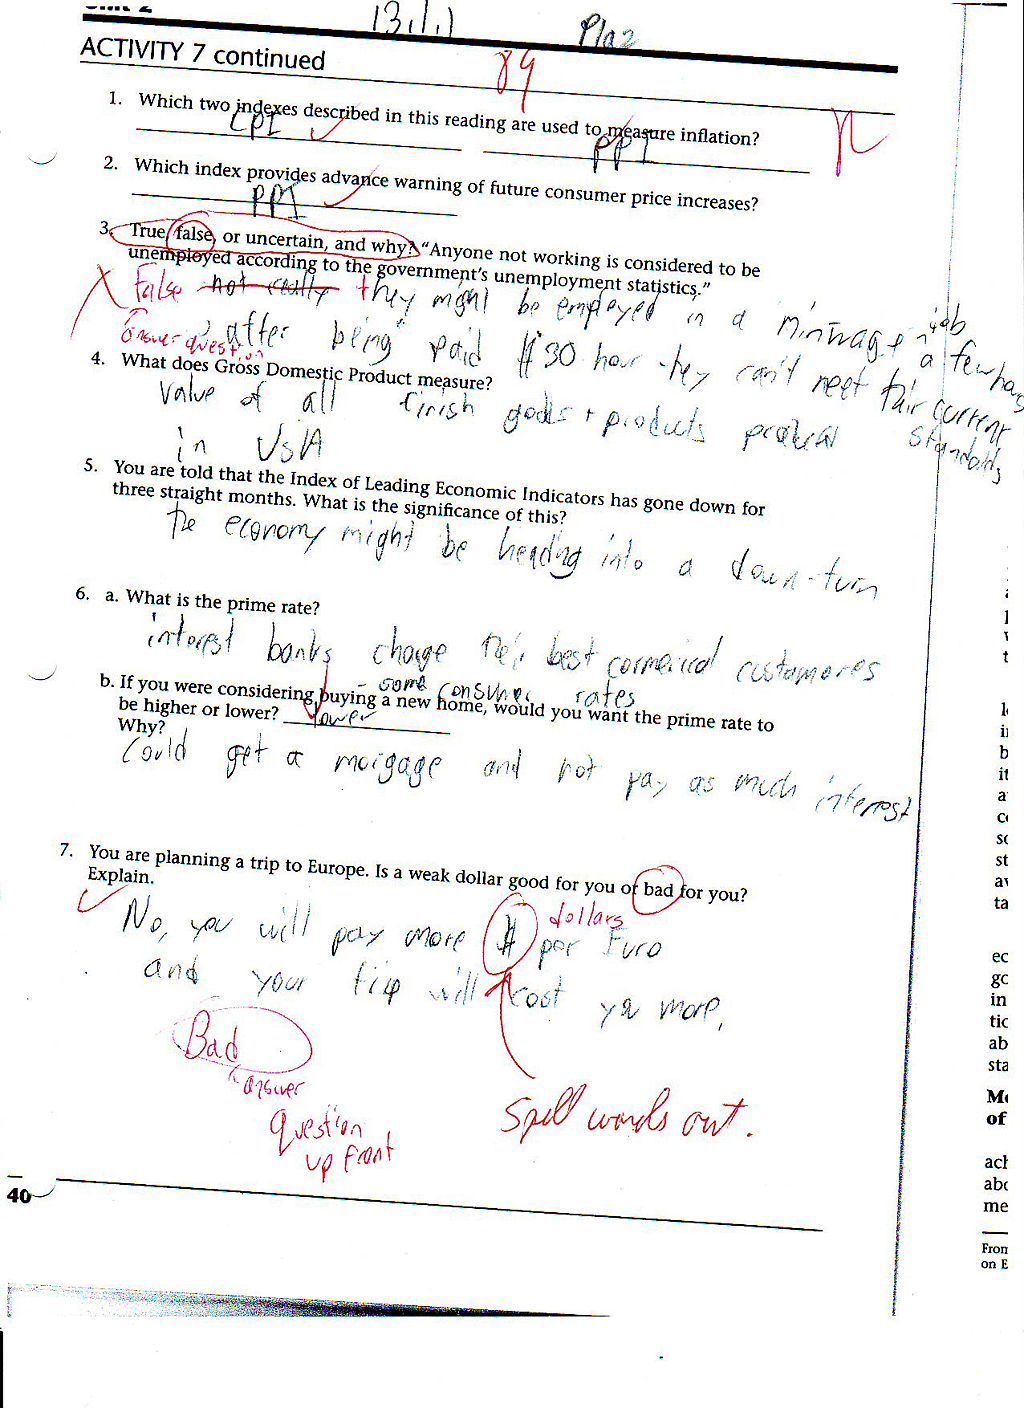 13.1.1
ACTIVITY 7 continued
89
1. Which two indexes described in this reading are used to measure inflation?
CPI PPI
2. Which index provides advance warning of future consumer price increases?
PPI
3. True, false, or uncertain, and why? “Anyone not working is considered to be
unemployed according to the government’s unemployment statistics.”
False not really they might be employed in a minwage job
answer question after being paid $30 hour they can't meet fair current
a few hours
standards
4. What does Gross Domestic Product measure?
Value of all finish goods + products
in USA
5. You are told that the Index of Leading Economic Indicators has gone down for
three straight months. What is the significance of this?
the economy might be heading into a down-turn
6. a. What is the prime rate?
interest banks charge their best commerical customores
- some consumer rates
b. If you were considering buying a new home, would you want the prime rate to
be higher or lower? lower
Why?
Could get a morgage and not pay as much interest
7. You are planning a trip to Europe. Is a weak dollar good for you or bad for you?
Explain.
No, you will pay more $ per Euro
dollars
and your trip will cost you more.
Bad
answer
question
up front
Spell words out.
40
Fron
on E